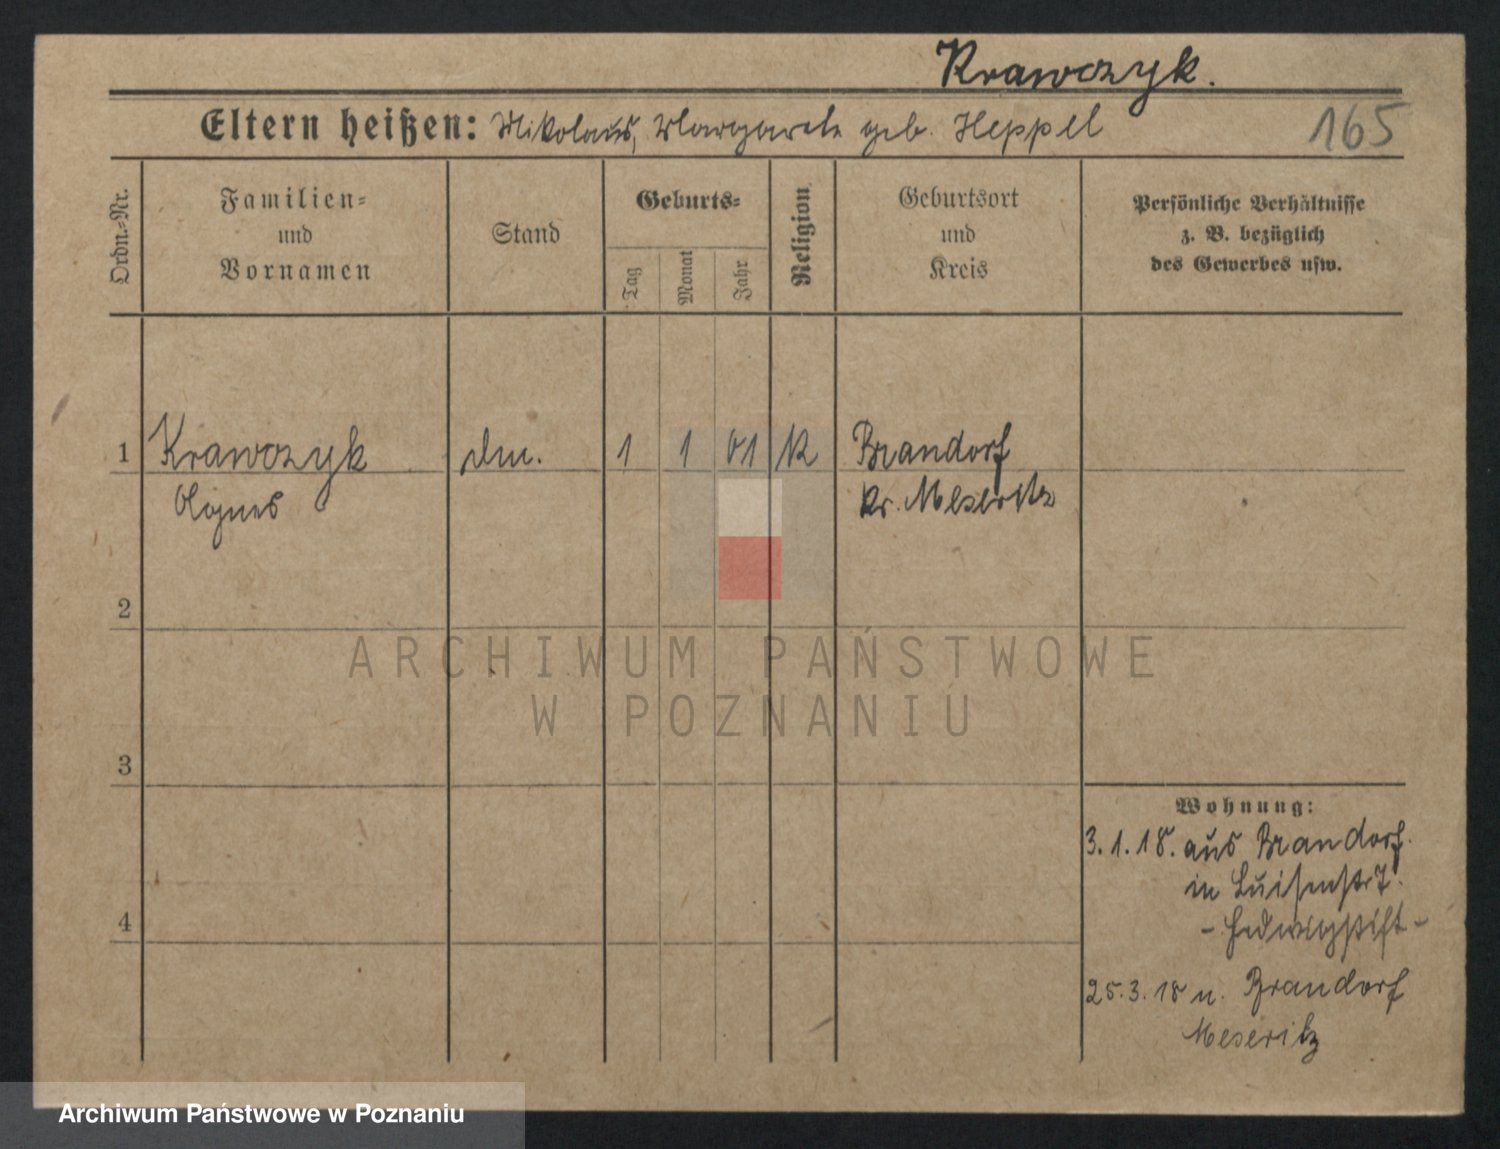 Krawczyk.
Eltern heißen: Nikolaus, Margarete geb. Heppel
165
Ordn.-Nr.
Familien-
und
Vornamen
Stand
Geburts-
Tag
Monat
Jahr
Religion
Geburtsort
und
Kreis
Persönliche Verhältnisse
z. B. bezüglich
des Gewerbes usw.
1 Krawczyk 1 1 01 K Brandorf
Agnes Kr. Meseritz
2
3
4
Wohnung:
3.1.18. aus Brandorf
in Luisenstr 7.
- Hedwigstift -
25.3.18 n. Brandorf
Meseritz
ARCHIWUM PAŃSTWOWE
W POZNANIU
Archiwum Państwowe w Poznaniu